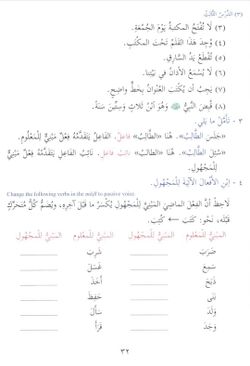 (٣) الدَّرْسُ الثَّالِثُ
(٣) لَا تُفْتَحُ المَكتبةُ يَوْمَ الجُمُعَةِ.
(٤) وُجِدَ هَذَا القَلَمُ تَحْتَ المكْتَبِ.
(٥) تُقْطَعُ يَدُ السَّارِقِ.
(٦) لَا يُسْمَعُ الأَذَانُ في بَيْتِنا.
(٧) يَجِبُ أَن يُكْتَبَ العُنْوَانُ بِخَطٍّ واضحٍ.
(٨) قُبِضَ النَّبيُّ ﷺ وَهُوَ ابْنُ ثَلَاثٍ وَسِتِّينَ سَنَةً.
٣ - تَأَمَّلْ ما يَلي:
«جَلَسَ الطَّالِبُ». هُنَا «الطَّالِبُ» فاعِلٌ. الفَاعِلُ يَتَقَدَّمُهُ فِعْلٌ مَبْنِيٌّ لِلْمَعْلُومِ.
«سُئِلَ الطَّالِبُ». هُنَا «الطالبُ» نائبُ فاعلٍ. نائبُ الفَاعِلِ يَتَقَدَّمُهُ فِعْلٌ مَبْنِيٌّ لِلْمَجْهُولِ.
٤ - ابْنِ الأَفْعالَ الآتيةَ لِلْمَجْهُولِ.
Change the following verbs in the
لَاحِظْ أنَّ الفِعْلَ الماضِيَ المَبْنِيَّ لِلْمَجْهُولِ يُكْسَرُ ما قَبْلَ آخِرِهِ، ويُضَمُّ كُلُّ مُتَحَرِّكٍ
قَبْلَه، نَحْوُ: كَتَبَ ← كُتِبَ.
المَبْنِيُّ لِلْمَعْلُومِ المَبْنِيُّ لِلْمَجْهُولِ المَبْنِيُّ لِلْمَعْلُومِ المَبْنِيُّ لِلْمَجْهُولِ
ضَرَبَ شَرِبَ
سَمِعَ غَسَلَ
ذَبَحَ أَخَذَ
بَنَى حَفِظَ
وَلَدَ سَأَلَ
وَجَدَ قَرَأَ
٣٢